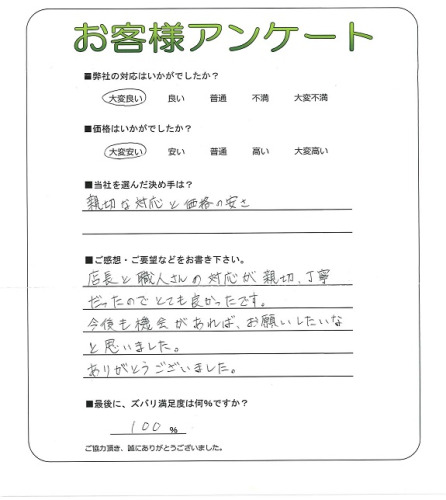 お客様アンケート
■弊社の対応はいかがでしたか？
大変良い 良い 普通 不満 大変不満
■価格はいかがでしたか？
大変安い 安い 普通 高い 大変高い
■当社を選んだ決め手は？
親切な対応と価格の安さ
■ご感想・ご要望などをお書き下さい。
店長と職人さんの対応が親切、丁寧
だったのでとても良かったです。
今後も機会があれば、お願いしたいな
と思いました。
ありがとうございました。
■最後に、ズバリ満足度は何%ですか？
100 %
ご協力頂き、誠にありがとうございました。